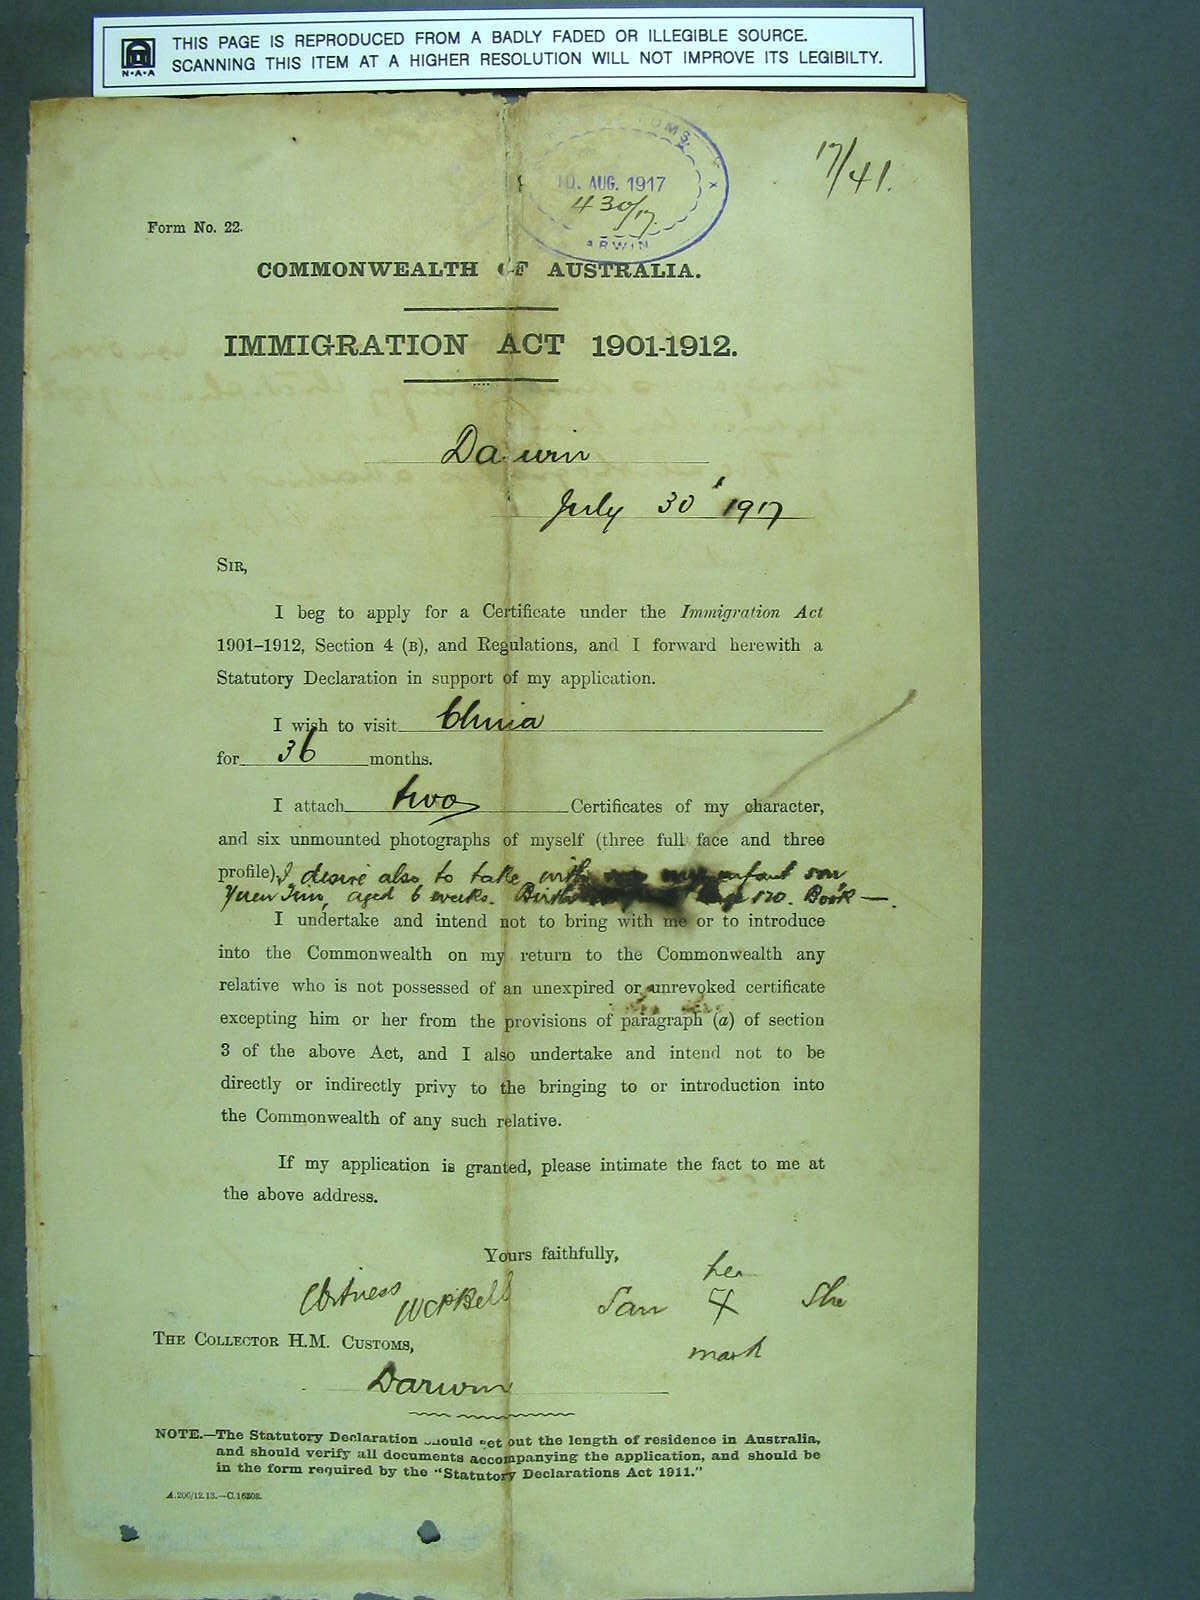 THIS PAGE IS REPRODUCED FROM A BADLY FADED OR ILLEGIBLE SOURCE.
SCANNING THIS ITEM AT A HIGHER RESOLUTION WILL NOT IMPROVE ITS LEGIBILTY.
N·A·A
10. AUG. 1917
430/17.
17/41.
Form No. 22.
COMMONWEALTH OF AUSTRALIA.
IMMIGRATION ACT 1901-1912.
Darwin
July 30' 1917
SIR,
I beg to apply for a Certificate under the Immigration Act
1901–1912, Section 4 (B), and Regulations, and I forward herewith a
Statutory Declaration in support of my application.
I wish to visit China
for 36 months.
I attach two Certificates of my character,
and six unmounted photographs of myself (three full face and three
profile). I desire also to take with me my infant son
Yuen Tim, aged 6 weeks. Birth Page 520. Book —.
I undertake and intend not to bring with me or to introduce
into the Commonwealth on my return to the Commonwealth any
relative who is not possessed of an unexpired or unrevoked certificate
excepting him or her from the provisions of paragraph (a) of section
3 of the above Act, and I also undertake and intend not to be
directly or indirectly privy to the bringing to or introduction into
the Commonwealth of any such relative.
If my application is granted, please intimate the fact to me at
the above address.
Yours faithfully,
her
Witness WCPBell San X She
mark
THE COLLECTOR H.M. CUSTOMS,
Darwin
NOTE.—The Statutory Declaration should set out the length of residence in Australia,
and should verify all documents accompanying the application, and should be
in the form required by the "Statutory Declarations Act 1911."
A.200/12.13.—C.16303.